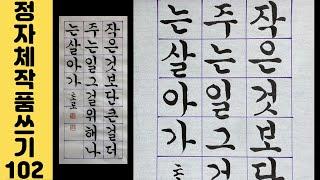 정자체작품쓰기
102
작은것보단큰걸더
주는일그걸위해나
는살아가
작은것보
주는일그
는살아가